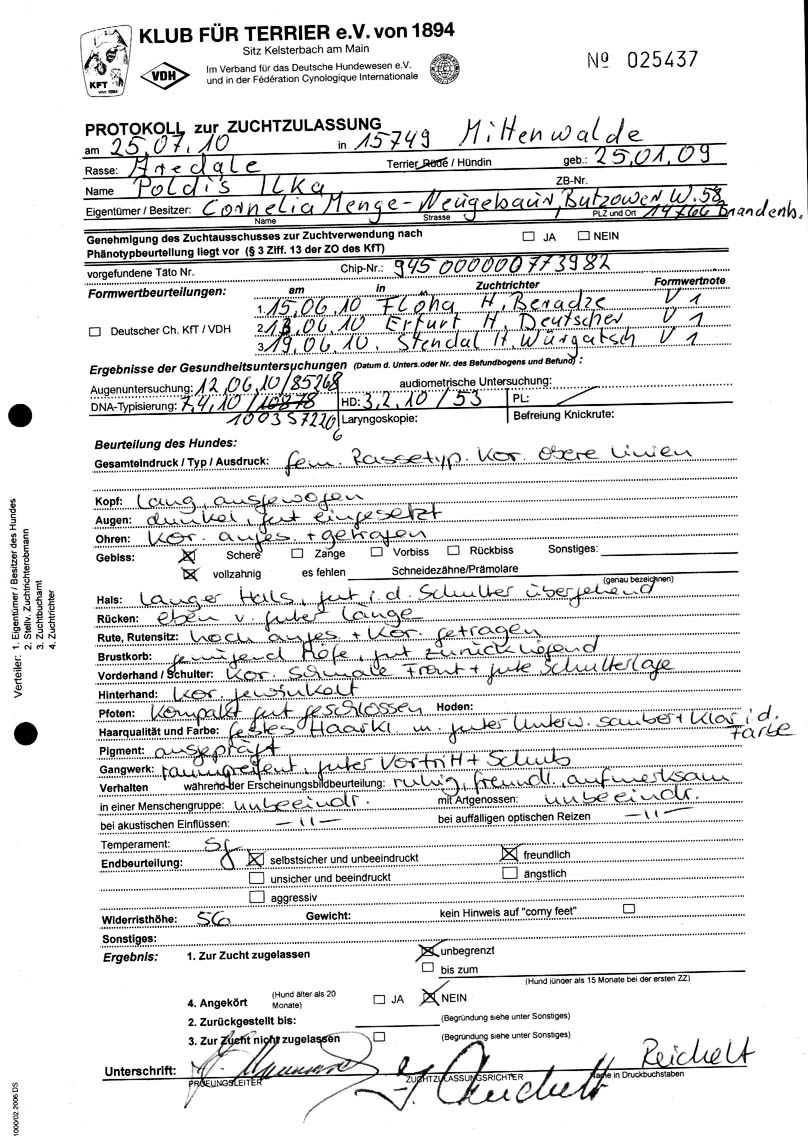 KLUB FÜR TERRIER e.V. von 1894
Sitz Kelsterbach am Main
KFT
von 1894
VDH
Im Verband für das Deutsche Hundewesen e.V.
und in der Fédération Cynologique Internationale
FCI
Nº 025437
PROTOKOLL zur ZUCHTZULASSUNG
am 25.07.10 in 15749 Mittenwalde
Rasse: Airedale Terrier Rüde / Hündin geb.: 25.01.09
Name Poldis Ilka ZB-Nr.
Eigentümer / Besitzer: Cornelia Menge-Neugebaur, Butzower W. 58 14766 Brandenb.
Name Strasse PLZ und Ort
Genehmigung des Zuchtausschusses zur Zuchtverwendung nach
Phänotypbeurteilung liegt vor (§ 3 Ziff. 13 der ZO des KfT) JA NEIN
vorgefundene Täto Nr. Chip-Nr.: 945 000000773982
Formwertbeurteilungen: am in Zuchtrichter Formwertnote
1. 15.06.10 Flöha H. Beradze V 1
Deutscher Ch. KfT / VDH 2. 13.06.10 Erfurt H. Deutscher V 1
3. 19.06.10. Stendal H. Würgatsch V 1
Ergebnisse der Gesundheitsuntersuchungen (Datum d. Unters.oder Nr. des Befundbogens und Befund) :
Augenuntersuchung: 12.06.10/85268 audiometrische Untersuchung:
DNA-Typisierung: 7.4.10/10878 HD: 3.2.10/53 PL: /
100357220 6 Laryngoskopie: Befreiung Knickrute:
Beurteilung des Hundes:
Gesamteindruck / Typ / Ausdruck: fem. Rassetyp. Kor. obere Linien
Kopf: Lang, ausgewogen
Augen: dunkel, gut eingesetzt
Ohren: Kor. anges. + getragen
Gebiss: Schere Zange Vorbiss Rückbiss Sonstiges:
vollzahnig es fehlen Schneidezähne/Prämolare
(genau bezeichnen)
Hals: Langer Hals, gut i.d. Schulter übergehend
Rücken: eben v. guter Länge
Rute, Rutensitz: hoch anges + Kor. getragen
Brustkorb: genügend tiefe, gut zurückliegend
Vorderhand / Schulter: Kor. schmale Front + gute Schulterlage
Hinterhand: Kor. gewinkelt
Pfoten: Kompakt gut geschlossen Hoden:
Haarqualität und Farbe: festes Haarkl. m. guter Unterw. sauber + Klar i.d. Farbe
Pigment: ausgeprägt
Gangwerk: raumgreifend, guter Vortritt + Schub
Verhalten während der Erscheinungsbildbeurteilung: ruhig, freundl., aufmerksam
in einer Menschengruppe: unbeeindr. mit Artgenossen: unbeeindr.
bei akustischen Einflüssen: -11- bei auffälligen optischen Reizen -11-
Temperament: sg
Endbeurteilung: selbstsicher und unbeeindruckt freundlich
unsicher und beeindruckt ängstlich
aggressiv
Widerristhöhe: 56 Gewicht: kein Hinweis auf "corny feet"
Sonstiges:
Ergebnis: 1. Zur Zucht zugelassen unbegrenzt
bis zum
(Hund jünger als 15 Monate bei der ersten ZZ)
4. Angekört (Hund älter als 20 Monate) JA NEIN
2. Zurückgestellt bis: (Begründung siehe unter Sonstiges)
3. Zur Zucht nicht zugelassen (Begründung siehe unter Sonstiges)
Unterschrift: Reichelt
PRÜFUNGSLEITER ZUCHTZULASSUNGSRICHTER Name in Druckbuchstaben
Verteiler: 1. Eigentümer / Besitzer des Hundes
2. Stellv. Zuchtrichterobmann
3. Zuchtbuchamt
4. Zuchtrichter
1000/02.2006 DS